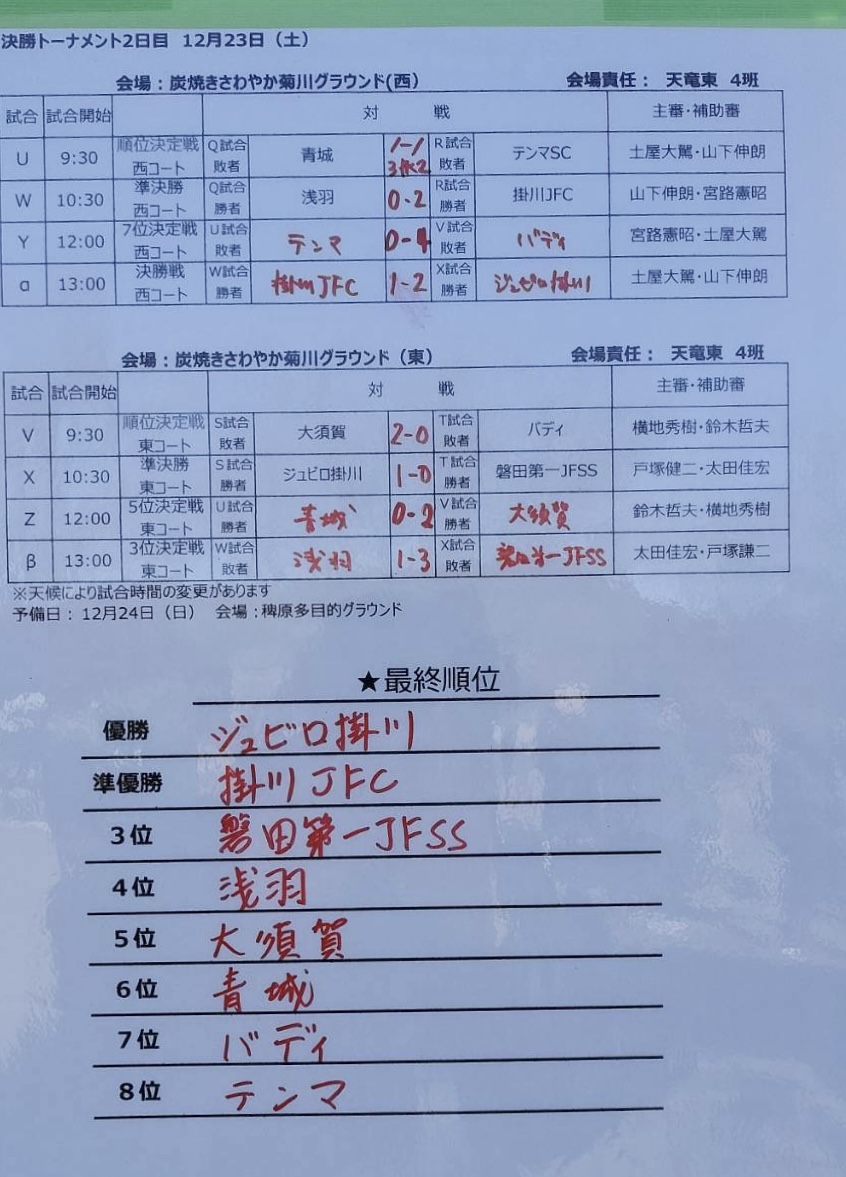 決勝トーナメント2日目 12月23日（土）
会場：炭焼きさわやか菊川グラウンド(西) 会場責任： 天竜東 4班
試合 試合開始 対 戦 主審・補助審
U 9:30 順位決定戦 西コート Q試合 敗者 青城 1-1 3PK2 R試合 敗者 テンマSC 土屋大騰・山下伸朗
W 10:30 準決勝 西コート Q試合 勝者 浅羽 0-2 R試合 勝者 掛川JFC 山下伸朗・宮路憲昭
Y 12:00 7位決定戦 西コート U試合 敗者 テンマ 0-4 V試合 敗者 バディ 宮路憲昭・土屋大騰
α 13:00 決勝戦 西コート W試合 勝者 掛川JFC 1-2 X試合 勝者 ジュビロ掛川 土屋大騰・山下伸朗
会場：炭焼きさわやか菊川グラウンド（東） 会場責任： 天竜東 4班
試合 試合開始 対 戦 主審・補助審
V 9:30 順位決定戦 東コート S試合 敗者 大須賀 2-0 T試合 敗者 バディ 横地秀樹・鈴木哲夫
X 10:30 準決勝 東コート S試合 勝者 ジュビロ掛川 1-0 T試合 勝者 磐田第一JFSS 戸塚健二・太田佳宏
Z 12:00 5位決定戦 東コート U試合 勝者 青城 0-2 V試合 勝者 大須賀 鈴木哲夫・横地秀樹
β 13:00 3位決定戦 東コート W試合 敗者 浅羽 1-3 X試合 敗者 磐田第一JFSS 太田佳宏・戸塚謙二
※天候により試合時間の変更があります
予備日：12月24日（日） 会場：稗原多目的グラウンド
★最終順位
優勝 ジュビロ掛川
準優勝 掛川JFC
3位 磐田第一JFSS
4位 浅羽
5位 大須賀
6位 青城
7位 バディ
8位 テンマ